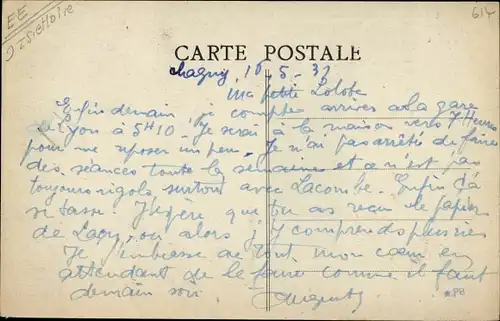 EE
614
CARTE POSTALE
Chagny, 10-5-37
Ma petite Lolote
Enfin demain je compte arriver à la gare
de Lyon à 5H10. Je serai à la maison vers 7 Heures
pour me reposer un peu. Je n'ai pas arrêté de faire
des séances toute la semaine et ce n'est pas
toujours rigolo surtout avec Lacombe. Enfin ça
se tasse. J'espère que tu as reçu le papier
de Lagny, ou alors j'y comprends plus rien
Je t'embrasse de tout mon cœur en
attendant de le faire comme il faut
demain soir.